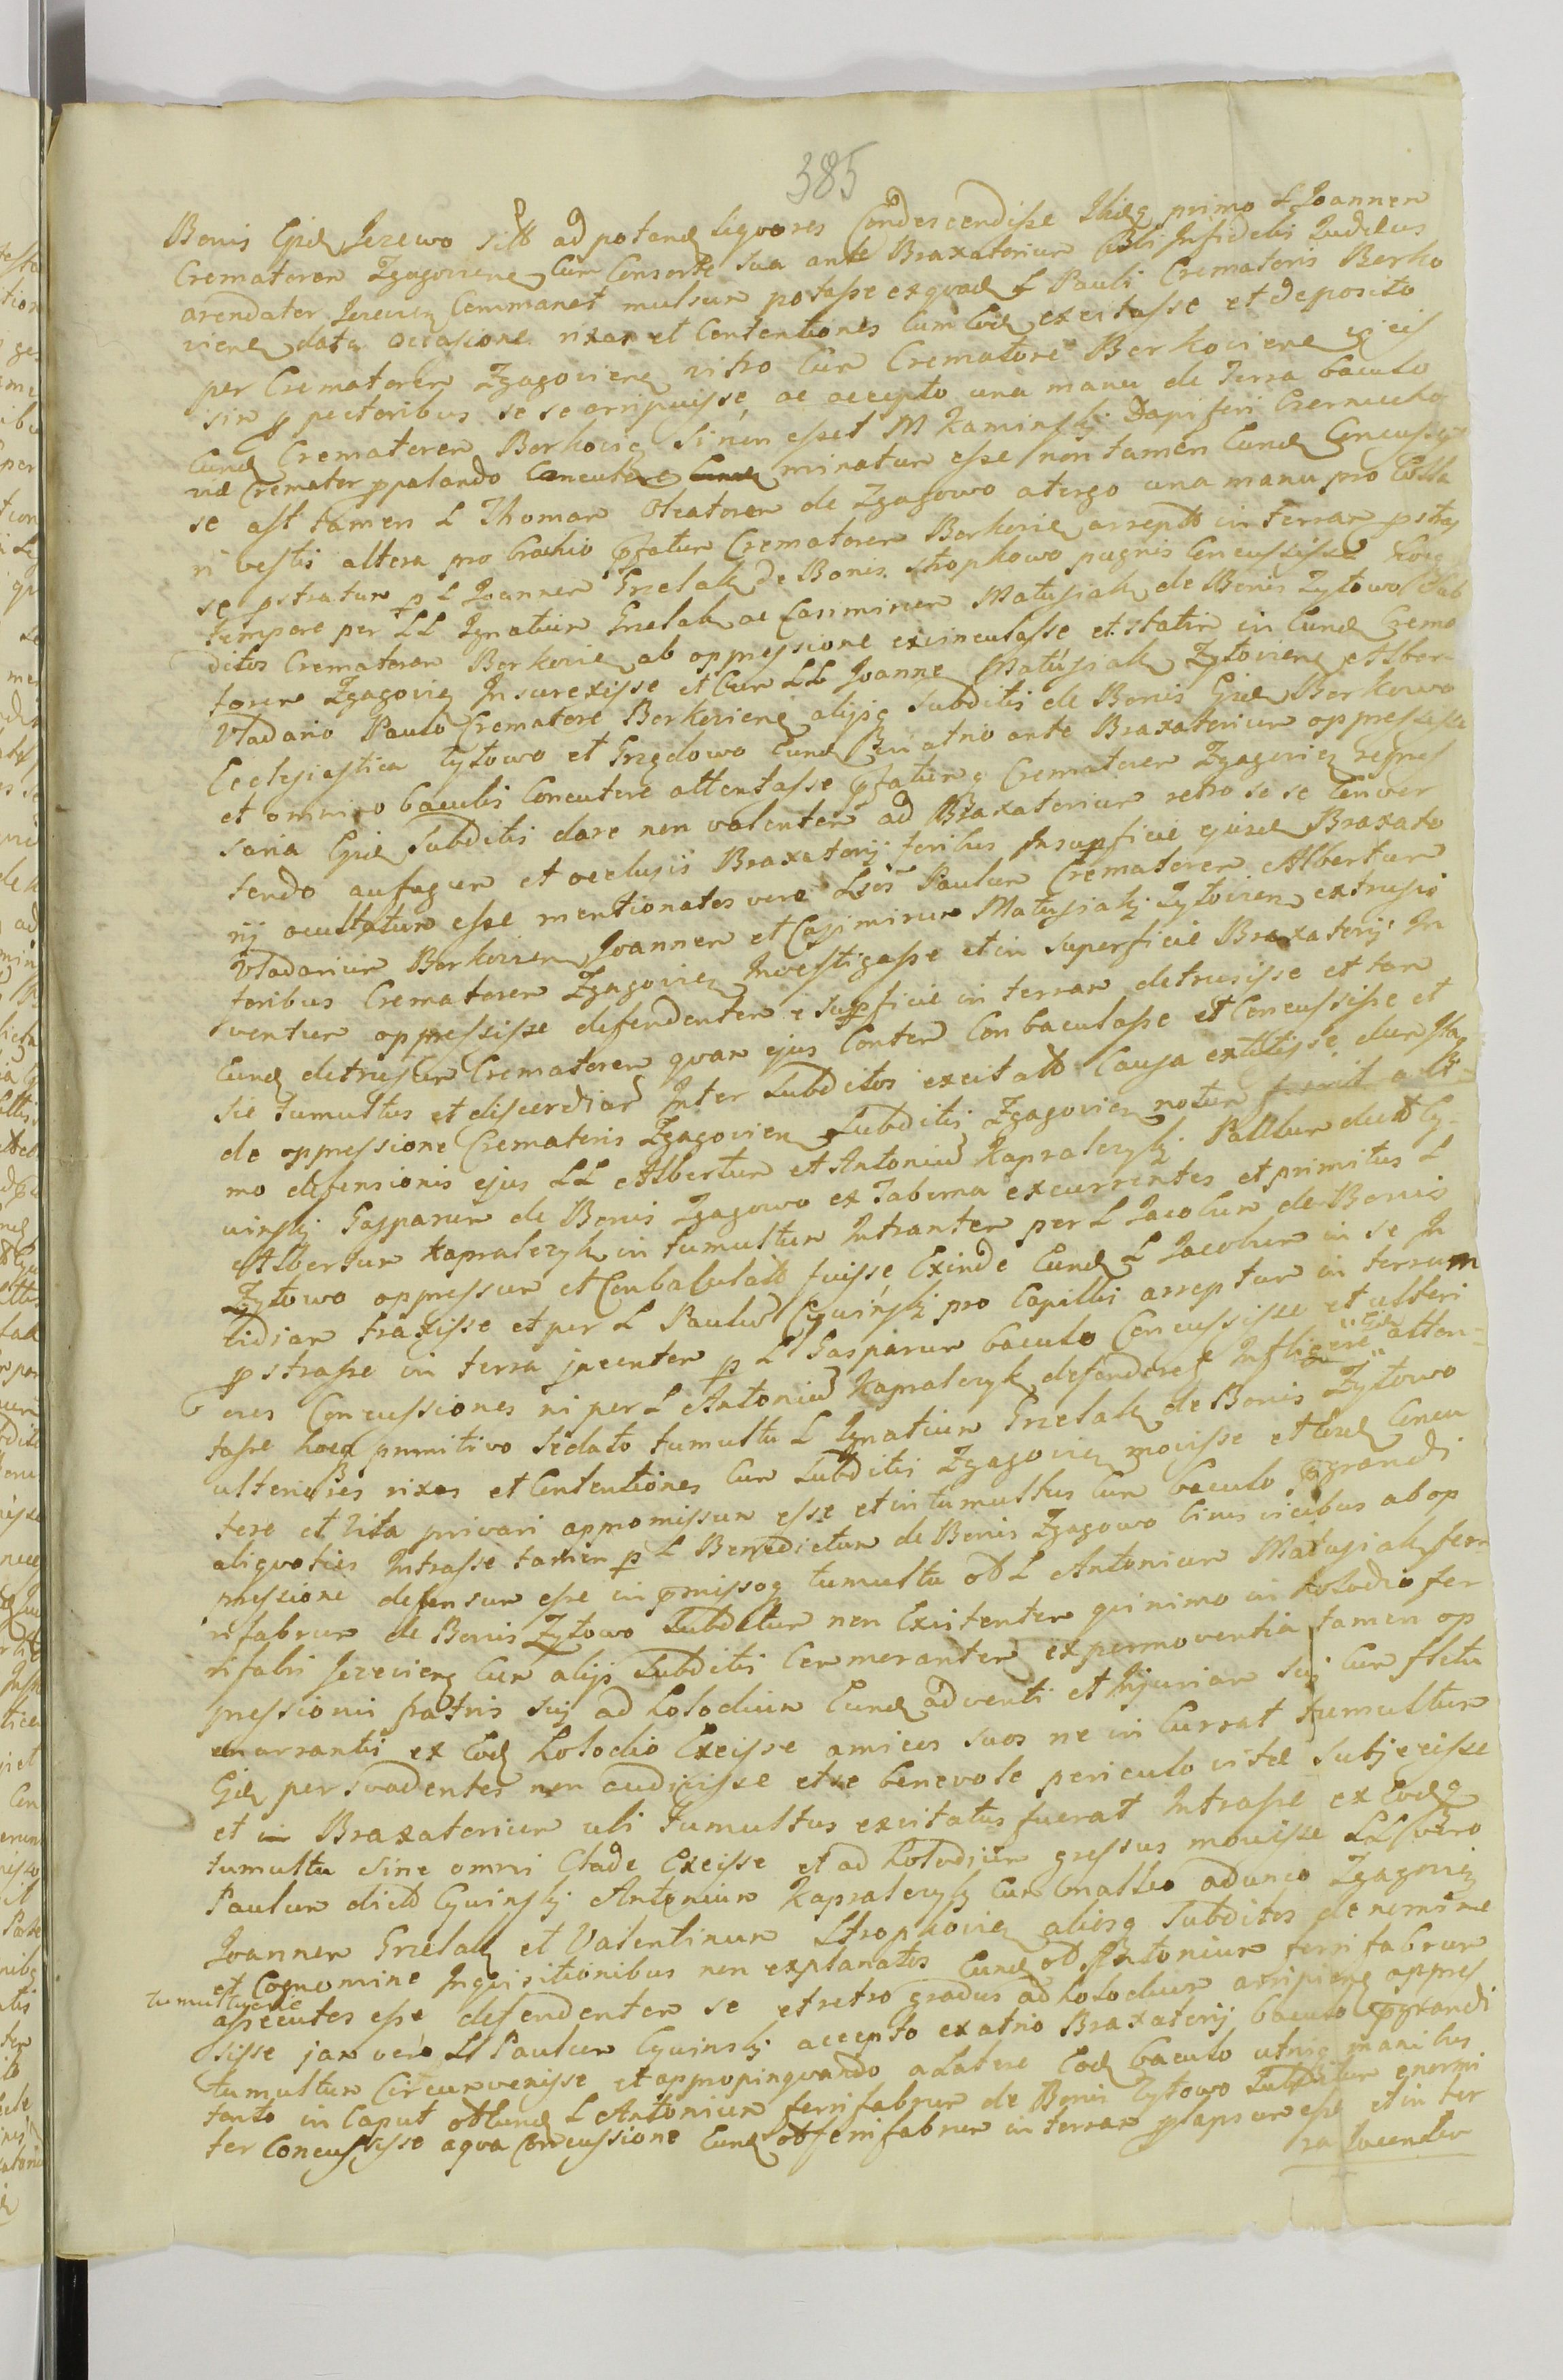 385
Bonis Ejsd Jezewo sitt ad potand liquores Condescendisse Ibidq primo L Joannen
Crematorem Zgagoviens Cum Consorte sua ante Braxatorium Ubi Infidelis Judeus
arendator Jezevien Commanet mulsum potasse ex quad L Pauli Crematoris Borko
viens data occasione rixas et Contentiones Cum Eod excitasse et deposito
per Crematorem Zgagoviens vitro Cum Crematore Borkoviens
sim p pectoribus se se arripuisse, ac accepto una manu de Terra baculo
Eund Crematorem Borkovien si non esset M Kaminski Dapiferi Czernicho
vie Cremator ppalando Concutere minatum esse non tamen Eund Concussis
se ast tamen L Thomam de Zgagowo a tergo una manu pro Colla
ri vestis altera pro brachio pfatum Crematorem Borkovien arreptt in terram pstras
se pstratum p L Joannem Grzelak de Bonis Strophowo pugnis Concussisse hocq
tempore per LL Ignatium Grzelak ac Casimirum Matusiak de Bonis Zytowo Sub
ditos Crematorem Borkovien ab oppressione exvinculasse et statim in Eund Crema
torem Zgagovien Insurexisse et Cum LL Joanne Matusiak Zytoviens Alber
Vladario Paulo Crematore Borkoviens alijsq Subditis de Bonis Ejsd Borkowo
Ecclesiastica Zytowo et Grzedowo Eund in atrio ante Braxatorium oppressisse
et omnino baculis Concutere attentasse pfatumq Crematorem Zgagovien
saria Ejsd Subditis dare non valentem ad Braxatorium retro se se Conver
tendo aufugum et occlusis Braxatorij foribus In supficie ejusd Braxato
rij ocultatum esse mentionatos vero Paulum Crematorem Albertum
Vladarium Borkovien Joannem et Casimirum Matusiaki Zytovien extrusis
foribus Crematorem Zgagovien Investigasse et in superficie Braxatorij In
ventum oppressisse defendentem e supficie in terram detrusisse et tam
Eund detrusum Crematorem quam ejus Conten Conbaculasse et Concussisse et
sic tumultus et discordiar Inter Subditos excitatt Causa extitisse dum Ita
de oppressione Crematoris Zgagovien Subditis Zgagovien notum
mo defensionis ejus LL Albertum et Antonium Kapralczyki Paullum dictt Cy-
winski Gasparum de Bonis Zgagowo ex Taberna excurrentes et primitus L
Albertum Kapralczyk in tumultum Intrantem per L Jacobum de Bonis
Zytowo oppressum et Conbaculatt fuisse, Exinde Eund L Jacobum in se In
sidiam traxisse et per L Paulum Cywinski pro Capillis arreptum in terram
pstrasse in terra jacentem p L Gasparum baculo Concussisse et ulteri
ores Concussiones ni per L Antonium Kapralczyk defenderet Infligere Eidem atten-
tasse hocq primitivo sedato tumultu L Ignatium Grzelak de Bonis Zytowo
ulteriores rixas et Contentiones Cum Subditis Zgagovien movisse et Concu
tere et Vita privari apromissum esse et in tumultus Cum baculo pgrandi
aliquoties Intrasse tamen p L Benedictum de Bonis Zgagowo vicibus ab op
pressione defensum esse in pmissoq tumultu L Antonium Matusiak ferr
rifabrum de Bonis Zytowo Subditum non Existentem qui nimo in holodio fer
rifabri Jezeviens Cum alijs Subditis Commorantem ex permoventia tamen op
pressionis patris sui ad holodium Eund adventi et Injuriam sui Cum fletu
enarrantis ex Eod holodio Exisse amicos suos ne in Currat tumultum
Ejd persvadentes non audivisse et se benevole periculo vitae subjecisse
et in Braxatorium ubi tumultus excitatus fuerat Intrasse ex Eodq
tumultu sine omni Clade Exisse et ad holodium gressus movisse LL vero
Paulum dictt Cywinski Antonium Kapralczyk Cum malleo adunco Zgagovien
Joannem Grzelak et Valentinum Strophovien aliosq Subditos de nomine
et Cognomine Inquisitionibus non explanatos Eund Antonium ferrifabrum
tumultuose assecutos esse defendentem se et retro gradus ad holodium arripiens oppres
sisse jam vero L Paulum Cywinski accepto ex atrio Braxatorij baculo pgrandi
tumultum Circumvenisse et appropinquando a latere Eod baculo utrisq manibus
tanto in Caput Eund L Antonium ferrifabrum de Bonis Zytowo Subditum enormi
ter Concussisse a qua Concussione Eund ferrifabrum in terram plapsum esse et in ter
ra Jacentem